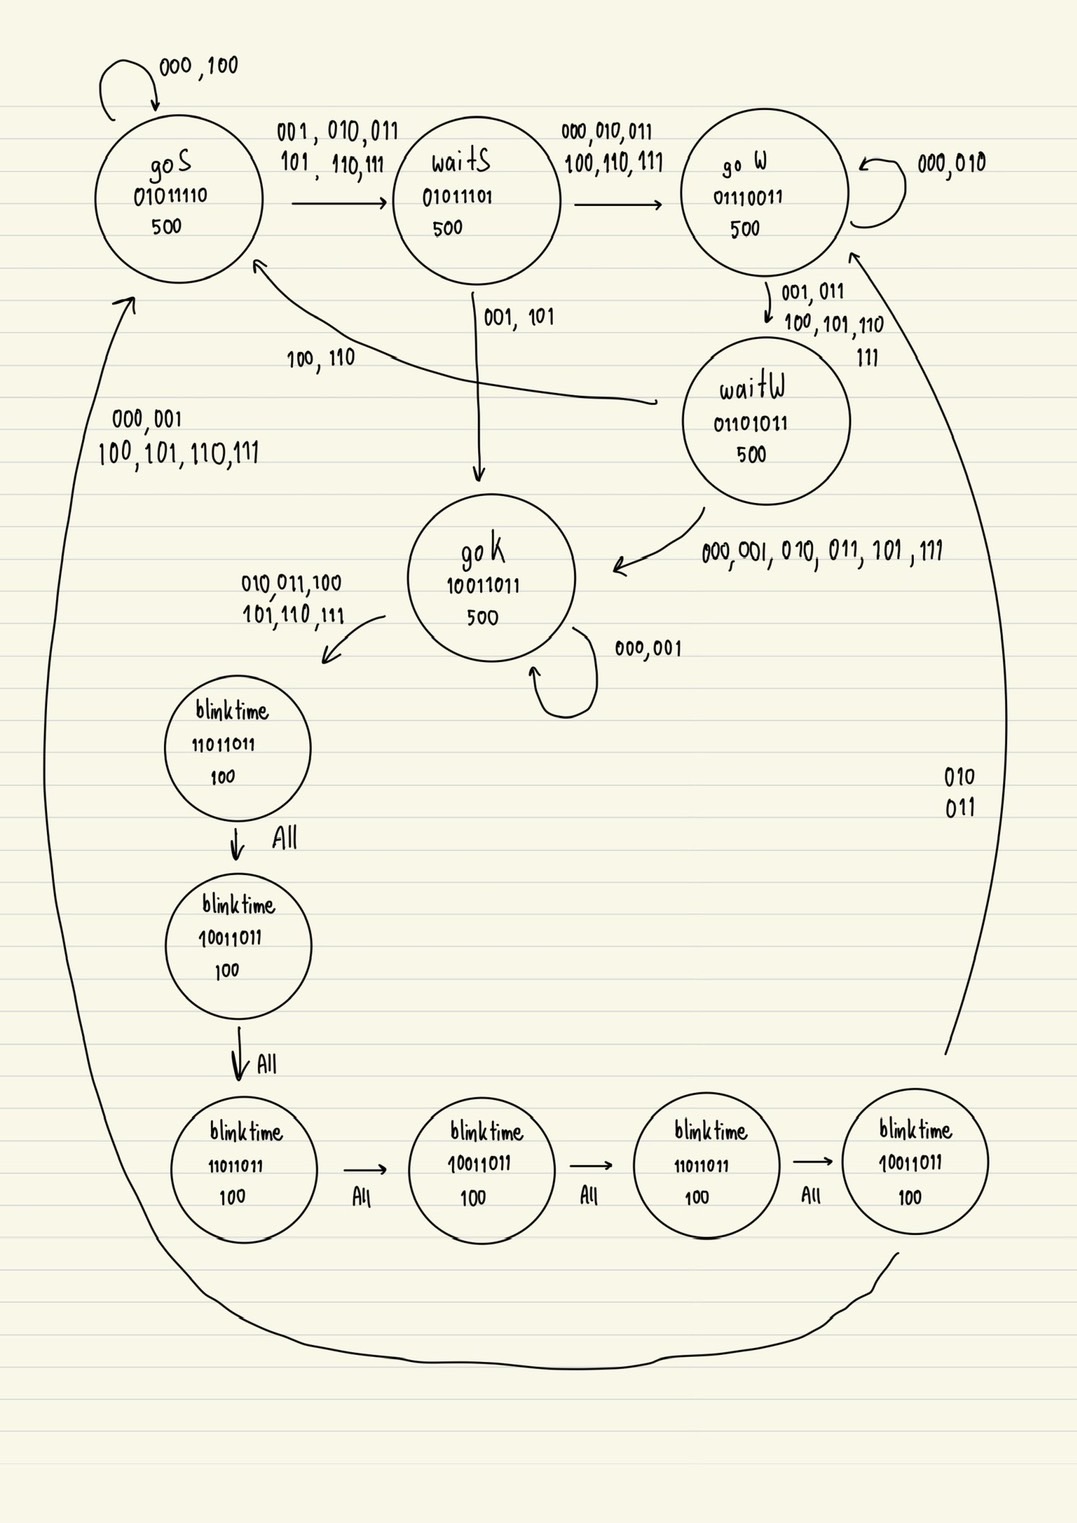 000,100
goS
01011110
500
001, 010,011
101, 110,111
waitS
01011101
500
000,010,011
100,110,111
go W
01110011
500
000,010
001,011
100,101,110
111
001, 101
100,110
waitW
01101011
500
000,001
100,101,110,111
goK
10011011
500
000,001,010,011,101,111
010,011,100
101,110,111
000,001
blinktime
11011011
100
010
011
All
blinktime
10011011
100
All
blinktime
11011011
100
All
blinktime
10011011
100
All
blinktime
11011011
100
All
blinktime
10011011
100